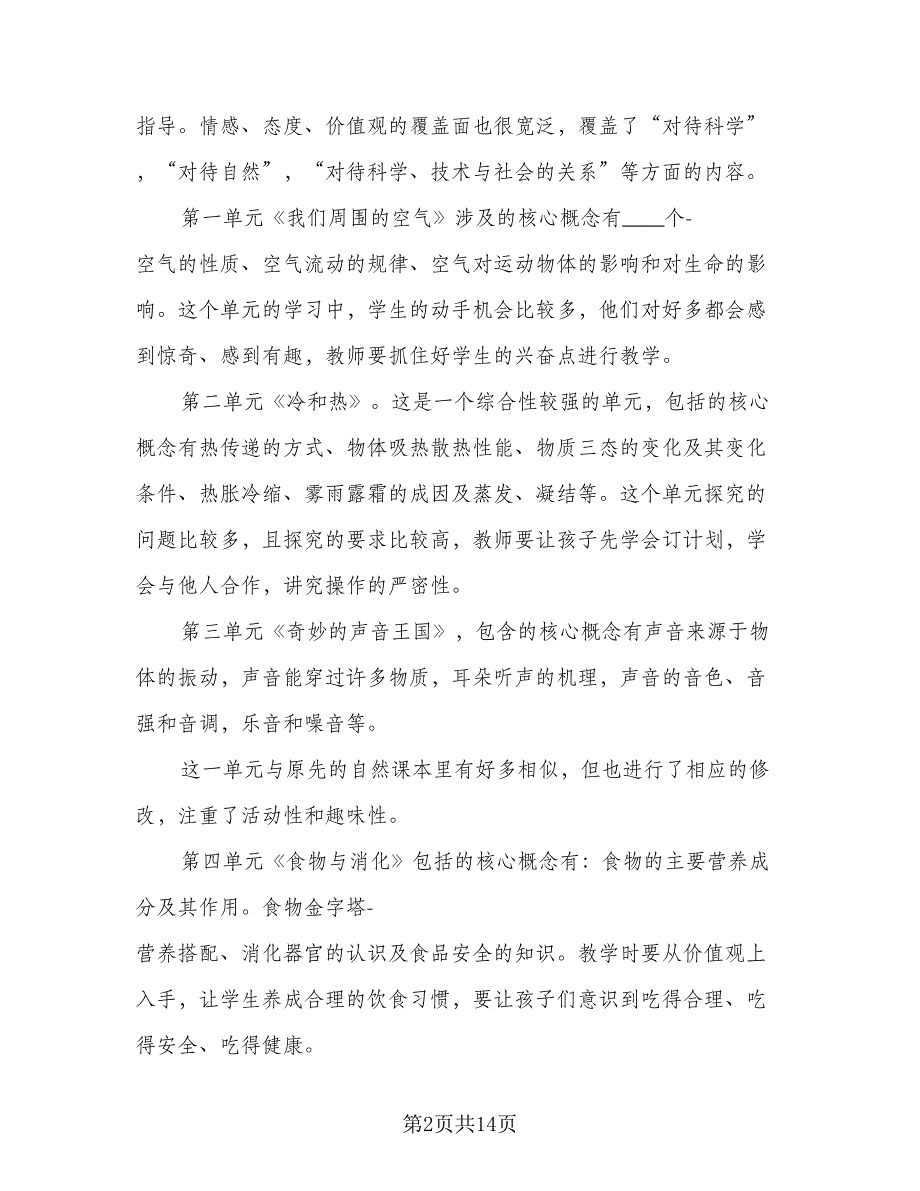 指导。情感、态度、价值观的覆盖面也很宽泛，覆盖了“对待科学”
，“对待自然”，“对待科学、技术与社会的关系”等方面的内容。
第一单元《我们周围的空气》涉及的核心概念有____个-
空气的性质、空气流动的规律、空气对运动物体的影响和对生命的影
响。这个单元的学习中，学生的动手机会比较多，他们对好多都会感
到惊奇、感到有趣，教师要抓住好学生的兴奋点进行教学。
第二单元《冷和热》。这是一个综合性较强的单元，包括的核心
概念有热传递的方式、物体吸热散热性能、物质三态的变化及其变化
条件、热胀冷缩、雾雨露霜的成因及蒸发、凝结等。这个单元探究的
问题比较多，且探究的要求比较高，教师要让孩子先学会订计划，学
会与他人合作，讲究操作的严密性。
第三单元《奇妙的声音王国》，包含的核心概念有声音来源于物
体的振动，声音能穿过许多物质，耳朵听声的机理，声音的音色、音
强和音调，乐音和噪音等。
这一单元与原先的自然课本里有好多相似，但也进行了相应的修
改，注重了活动性和趣味性。
第四单元《食物与消化》包括的核心概念有：食物的主要营养成
分及其作用。食物金字塔-
营养搭配、消化器官的认识及食品安全的知识。教学时要从价值观上
入手，让学生养成合理的饮食习惯，要让孩子们意识到吃得合理、吃
得安全、吃得健康。
第2页共14页